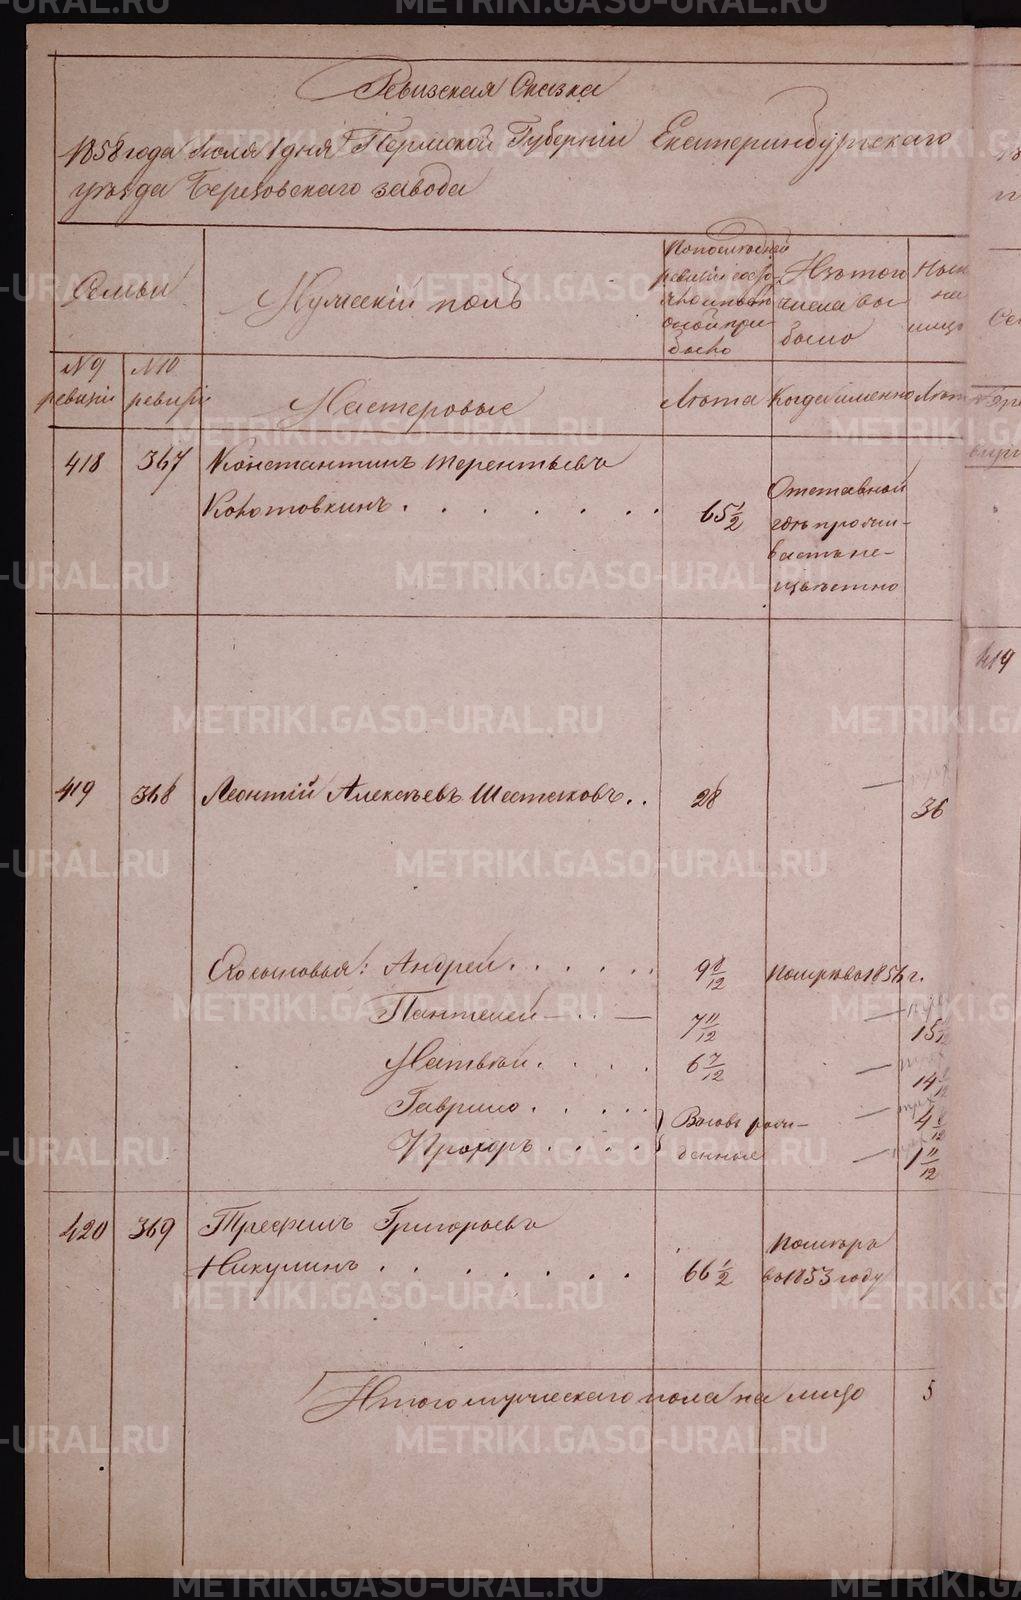 Ревизская Сказка
1858 года Июля 1 дня Пермской Губернии Екатеринбургского
уѣзда Березовскаго завода
Семьи
Мужескій полъ
По последней
ревизіи состо-
яло и послѣ
оной при
было
Изъ того
числа вы
было
Ныне
на
лицо
№ 9
ревизіи
№ 10
ревизіи
Мастеровые
Лѣта
Когда именно
Лѣт
418 367 Константинъ Терентьевъ
Коротовкинъ . . . . . . . 65 1/2
Отставной
гдѣ прожи-
ваетъ не-
извѣстно
419 368 Леонтій Алексѣевъ Шестаковъ . . 28 — 36
Его сыновья: Андрей . . . . . . 9 8/12 Померъ въ 1856 г.
Пантелей — . . — 7 11/12 — 15 11/12
Матвѣй . . . . 6 7/12 — 14
Гаврило . . . . . Вновь рож- — 4
Прохоръ . . . . . денные — 1 11/12
420 369 Трефилъ Григорьевъ
Никулинъ . . . . . . . 66 1/2
Померъ
въ 1853 году
Итого мужескаго пола на лицо 5
419
METRIKI.GASO-URAL.RU